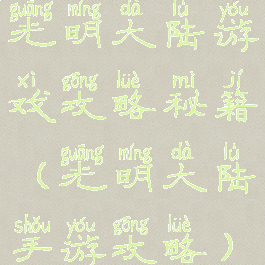 guāng míng dà lù yóu
光明大陆游
xì gōng lüè mì jí
戏攻略秘籍
guāng míng dà lù
（光明大陆
shǒu yóu gōng lüè
手游攻略）